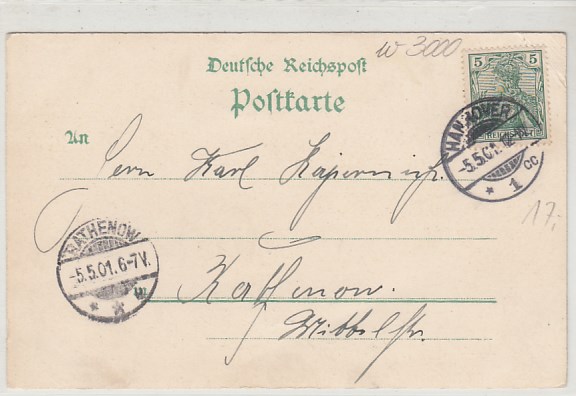 w 3000
Deutsche Reichspost
Postkarte
5 5
HANNOVER
-5.5.01.
* 1 cc
An
Herrn Karl
17.-
RATHENOW
-5.5.01.6-7V.
* * *
in Rathenow.
Mittelstr.